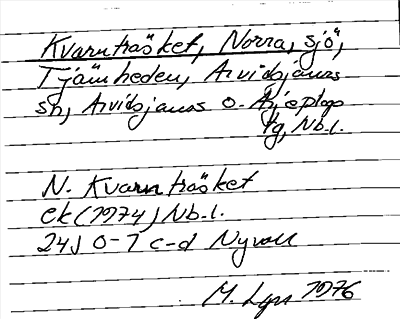 Kvarnträsket, Norra, sjö,
Tjämheden, Arvidsjaurs
sn, Arvidsjaurs o. Arjeplogs
tg, Nb.l.
N. Kvarnträsket
ek (1974) Nb.l.
24J 0-1 c-d Nyvall
M. 1976